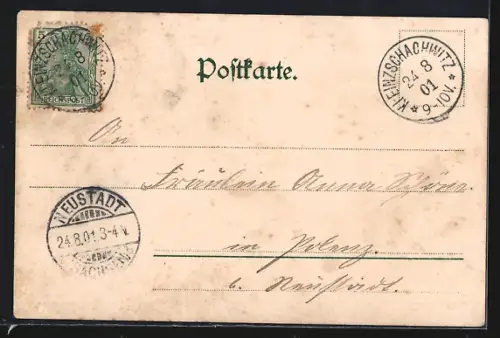 5
KLEINZSCHACHWITZ
8
01
REICHSPOST
Postkarte.
KLEINZSCHACHWITZ
24 8
01
* 9-10V. *
An
Fräulein Anna Schöne
in Polenz
b. Neustadt.
NEUSTADT
24.8.01.3-4N.
(SACHSEN)